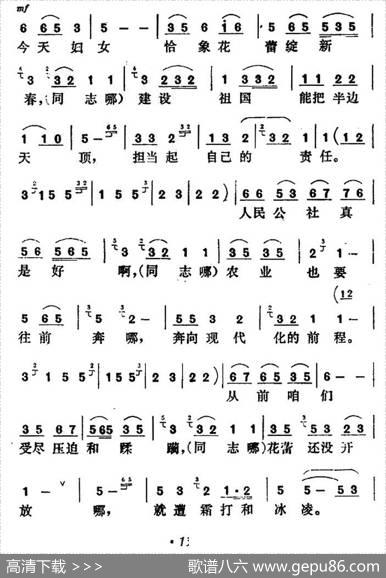 mf
6 6 5 3 5 - - 3 5 6 1 6 5 6 5 5 3 5
今天妇女 恰象花 蕾绽新
3 3 2 1 1 3 2 3 2 3 2 3 2 1 1 2 2
春,(同志哪)建设 祖国 能把半边
1 1 0 5 - 3 3 2 3 2 1 3 2 3 2 1 1 (1 2
天 顶, 担当起 自己的 责任。
3 1 5 5 3 1 5 5 1 5 5 2 3 2 2) 6 6 5 3 6 7 7 6
人民公社真
5 6 5 6 5 3 3 2 1 1 3 5 3 5 2 1 -
是好 啊,(同志哪)农业 也要
(1 2
5 5 2 - 5 5 3 2 3 2 1 1 -
往前 奔哪, 奔向现代 化的前程。
3 1 5 5 1 5 5 2 3 2 2) 6 7 6 5 3 6 - -
从前咱们
3 5 6 7 5 6 5 3 5 3 3 2 1 1 5 3 2 3
受尽压迫和蹂 躏,(同志哪)花蕾还没开
1 - 5 - 3 5 3 2 1·2 5 - 5 3
放 哪, 就遭霜打和冰凌。
高清下载 >>> 歌谱八六 www.gepu86.com